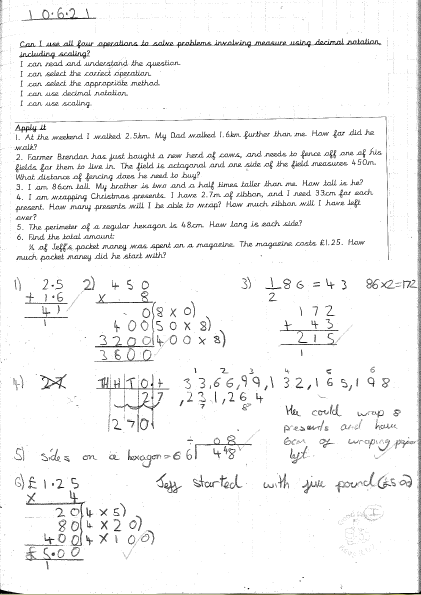 10.6.21
Can I use all four operations to solve problems involving measure using decimal notation,
including scaling?
I can read and understand the question.
I can select the correct operation.
I can select the appropriate method.
I can use decimal notation.
I can use scaling.
Apply it
1. At the weekend I walked 2.5km. My Dad walked 1.6km further than me. How far did he
walk?
2. Farmer Brendan has just bought a new herd of cows, and needs to fence off one of his
fields for them to live in. The field is octagonal and one side of the field measures 450m.
What distance of fencing does he need to buy?
3. I am 86cm tall. My brother is two and a half times taller than me. How tall is he?
4. I am wrapping Christmas presents. I have 2.7m of ribbon, and I need 33cm for each
present. How many presents will I be able to wrap? How much ribbon will I have left
over?
5. The perimeter of a regular hexagon is 48cm. How long is each side?
6. Find the total amount:
¼ of Jeff's pocket money was spent on a magazine. The magazine costs £1.25. How
much pocket money did he start with?
1) 2.5
+ 1.6
4.1
1
2) 450
x 8
0(8x0)
400(50x8)
3200(400x8)
3600
3) 1/2 86=43 86x2=172
172
+ 43
215
1
4) 2.7
TH H T O . t
2.7
270
1 2 3 4 5 6
33,66,99,132,165,198
,231,264
7 8
He could wrap 8
presents and have
6cm of wraping paper
left
5) sides on a hexagon=6
08
6 48
6) £1.25
x 4
20(4x5)
80(4x20)
400(4x100)
£5.00
1
Jeff started with five pound (£5.00)